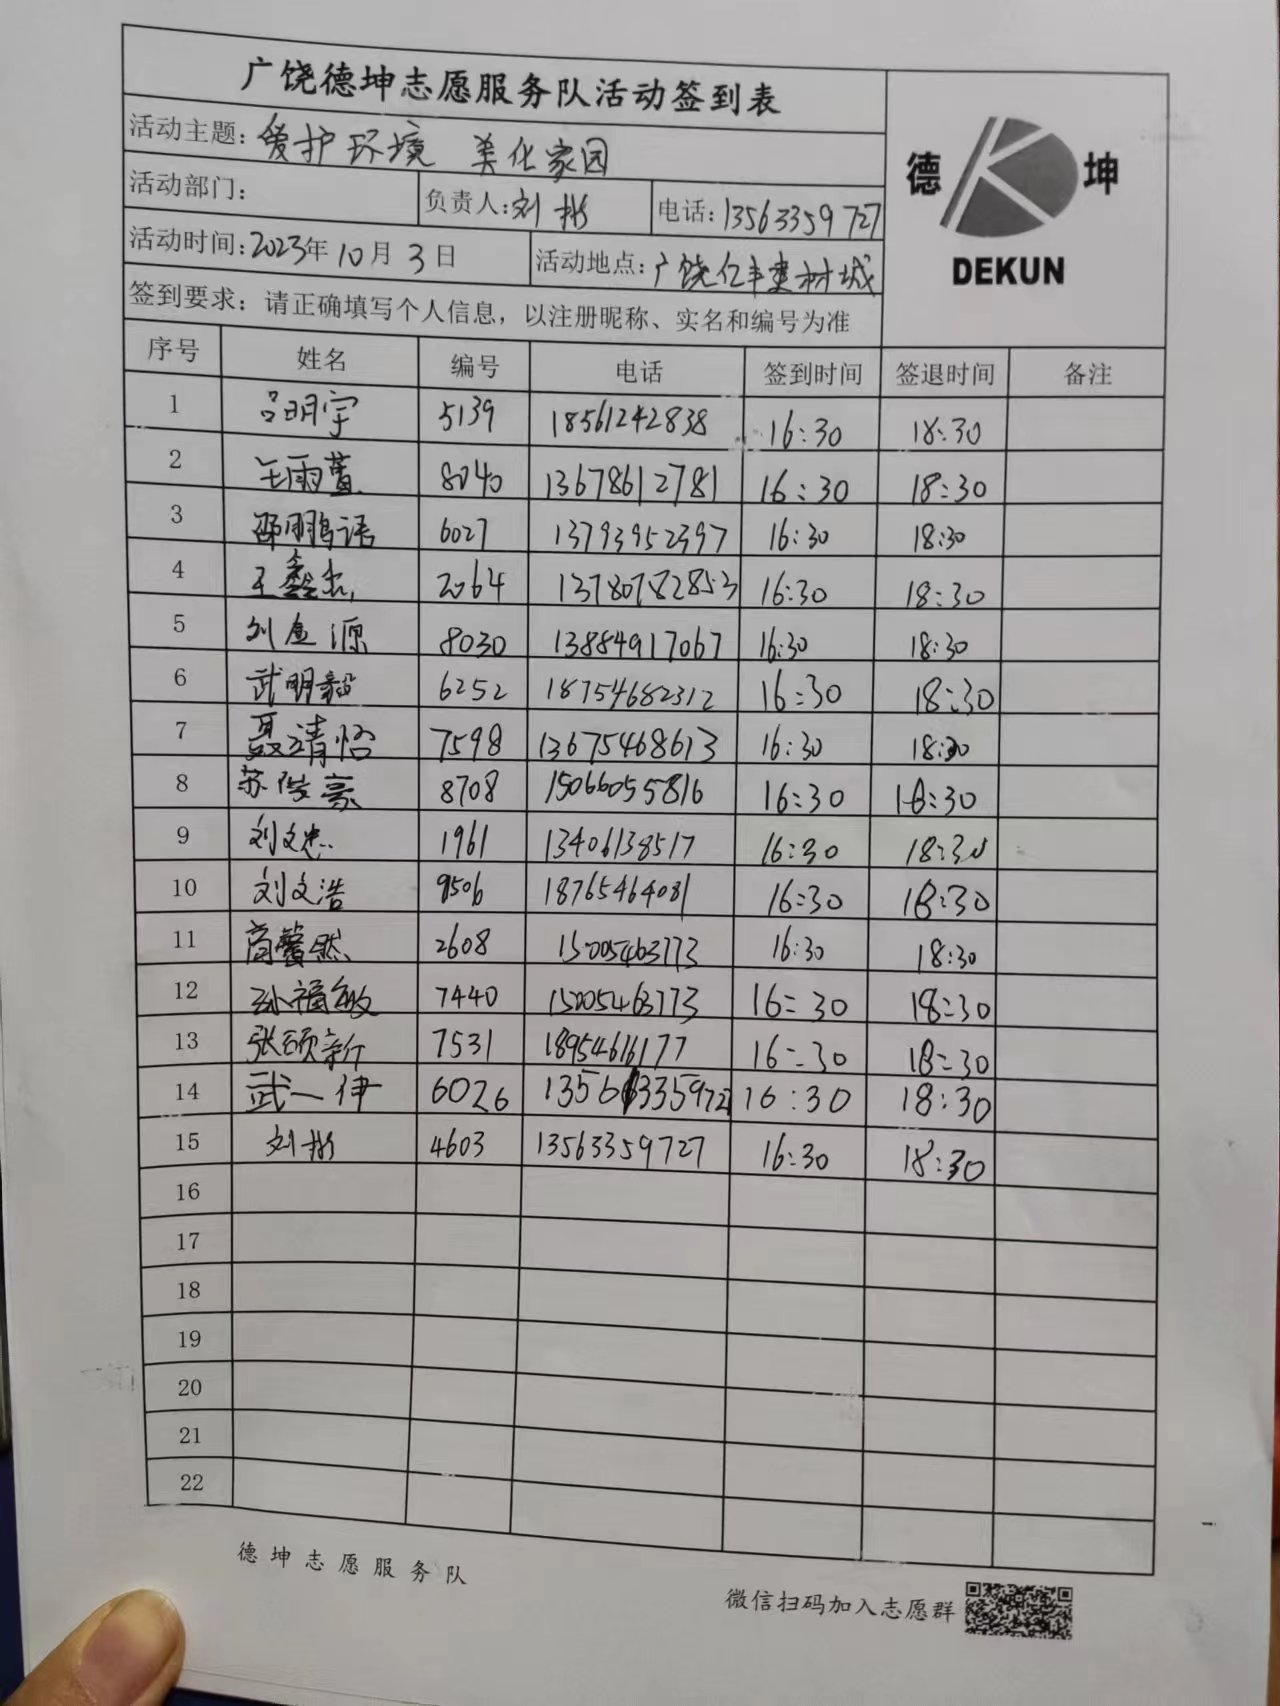 广饶德坤志愿服务队活动签到表
活动主题: 爱护环境 美化家园
德 坤
DEKUN
活动部门: 负责人: 刘彬 电话: 13563359727
活动时间: 2023年10月3日 活动地点: 广饶亿丰建材城
签到要求: 请正确填写个人信息, 以注册昵称、实名和编号为准
序号 姓名 编号 电话 签到时间 签退时间 备注
1 吕明宇 5139 18561242838 16:30 18:30
2 王雨萱 8040 13678612781 16:30 18:30
3 邵明鹏语 6027 13793952397 16:30 18:30
4 王鑫 2064 13780782853 16:30 18:30
5 刘金源 8030 13884917067 16:30 18:30
6 武明毅 6252 18754682312 16:30 18:30
7 聂靖怡 7598 13675468613 16:30 18:30
8 苏俊豪 8708 15066055816 16:30 18:30
9 刘文忠 1961 13406138517 16:30 18:30
10 刘文浩 9506 18765464081 16:30 18:30
11 商馨然 2608 15005463773 16:30 18:30
12 孙福敏 7440 15005463773 16:30 18:30
13 张颐新 7531 18954616177 16:30 18:30
14 武一伊 6026 16:30 18:30
15 刘彬 4603 13563359727 16:30 18:30
16
17
18
19
20
21
22
德坤志愿服务队
微信扫码加入志愿群